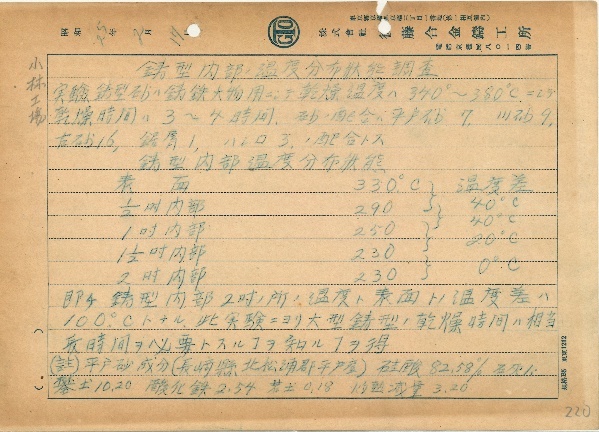 昭和 年 2月
株式會社 後藤合金鑄工所
小林工場
鋳型内部ノ温度分布状態調査
実験鋳型砂ハ鋳鉄大物用ニシテ乾燥温度ハ 340°～380°C ニシテ
乾燥時間ハ 3～4時間、砂ノ配合ハ平戸砂 7, 川砂 9,
古砂 16, 鋸屑 1, ハトロ 3, ノ配合トス
鋳型内部温度分布状態
表面 330°C 温度差
½吋内部 290 40°C
1吋内部 250 40°C
1½吋内部 230 20°C
2吋内部 230 0°C
即チ 鋳型内部 2吋ノ所ノ温度ト表面トノ温度差ハ
100°C トナル, 此実験ニヨリ大型鋳型ノ乾燥時間ハ相当
長時間ヲ必要トスル ヲ知ル ヲ得
(註) 平戸砂成分 (長崎縣北松浦郡平戸産) 硅酸 82.58%
礬土 10.20 酸化鉄 2.54 苦土 0.18 灼熱減量 3.20
220